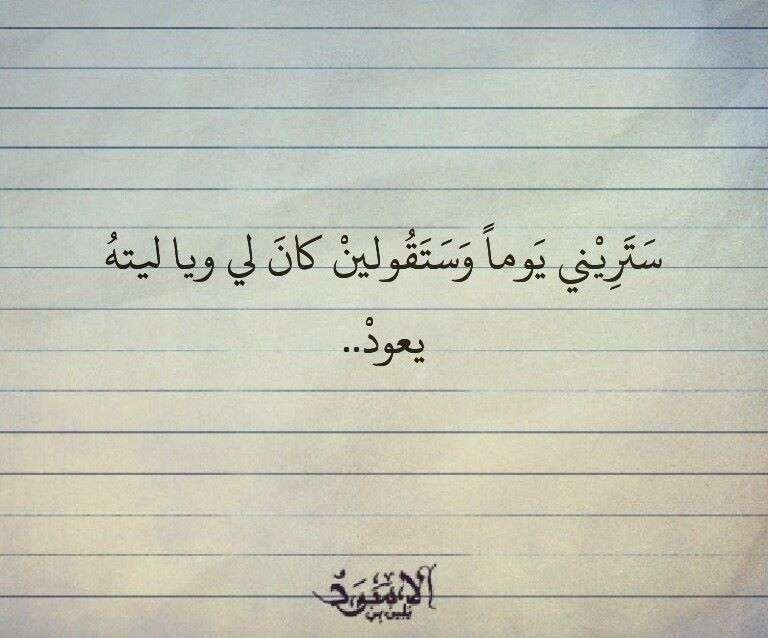 سَتَرِيْني يَوماً وَسَتَقُولينْ كانَ لي ويا ليتهُ
يعودْ..